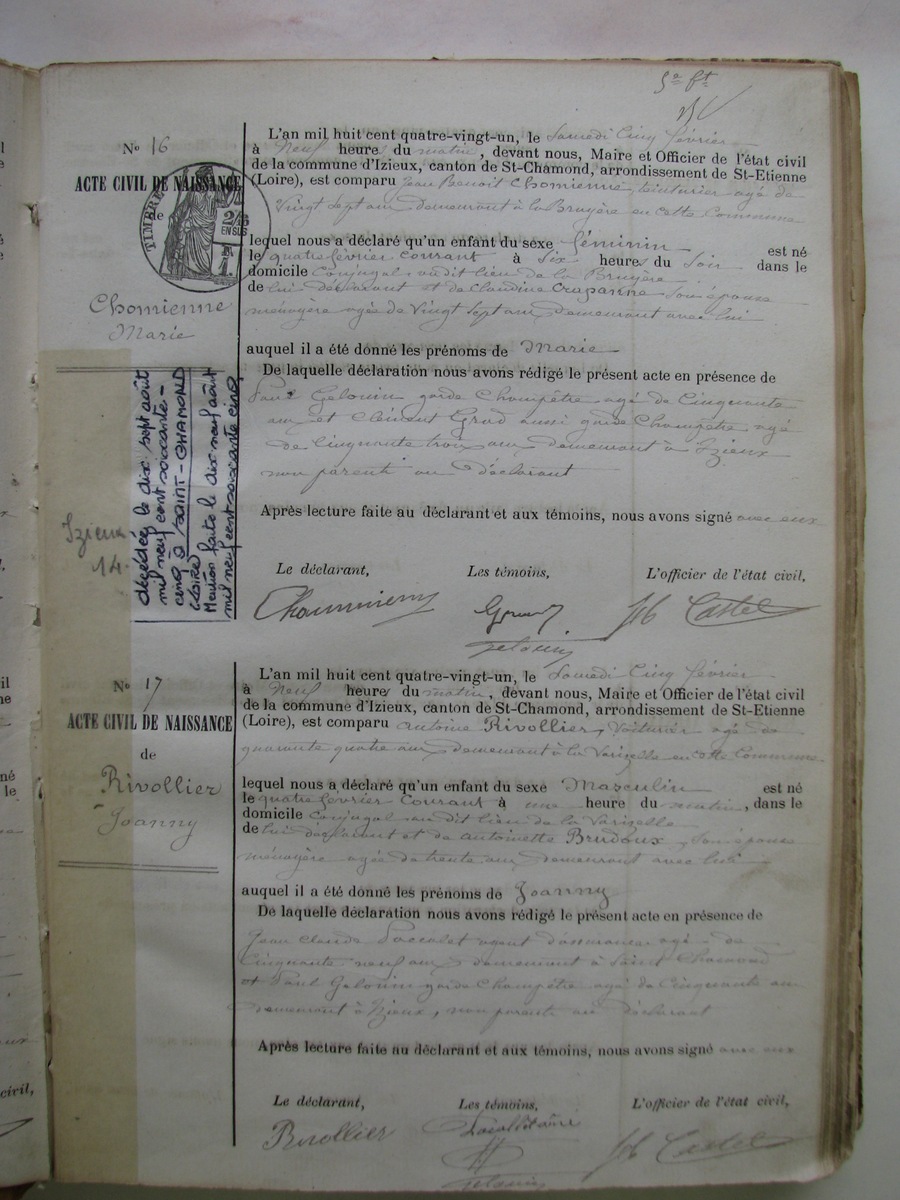 5e ft
N° 16
ACTE CIVIL DE NAISSANCE
de
TIMBRE
2/10
EN SUS
Chomienne
Marie
L'an mil huit cent quatre-vingt-un, le Samedi Cinq février
à Neuf heures du matin, devant nous, Maire et Officier de l'état civil
de la commune d'Izieux, canton de St-Chamond, arrondissement de St-Etienne
(Loire), est comparu Jean Benoit Chomienne, teinturier agé de
Vingt Sept ans demeurant à la Bruyère en cette Commune
lequel nous a déclaré qu'un enfant du sexe féminin est né
le quatre février courant à Six heures du Soir dans le
domicile Conjugal audit lieu de la Bruyère
de lui déclarant et de Claudine Crapanne Son épouse
ménagère agée de Vingt Sept ans demeurant avec lui
auquel il a été donné les prénoms de Marie
De laquelle déclaration nous avons rédigé le présent acte en présence de
Paul Gelouin garde Champêtre agé de Cinquante
ans et Clément Grud aussi garde Champêtre agé
de Cinquante trois ans demeurant à Izieux
non parents au déclarant
Après lecture faite au déclarant et aux témoins, nous avons signé avec eux
Le déclarant, Les témoins, L'officier de l'état civil,
Chaumienny Gelouin Castel
décédée le dix sept août
mil neuf cent soixante-
cinq à SAINT-CHAMOND
(LOIRE)
Mention faite le dix neuf août
mil neuf cent soixante cinq
Izieux
14
N° 17
ACTE CIVIL DE NAISSANCE
de
Rivollier
Joanny
L'an mil huit cent quatre-vingt-un, le Samedi Cinq février
à Neuf heures du matin, devant nous, Maire et Officier de l'état civil
de la commune d'Izieux, canton de St-Chamond, arrondissement de St-Etienne
(Loire), est comparu Antoine Rivollier, Voiturier agé de
quarante quatre ans demeurant à la Varizelle en cette Commune
lequel nous a déclaré qu'un enfant du sexe Masculin est né
le quatre février Courant à une heure du matin, dans le
domicile Conjugal audit lieu de la Varizelle
de lui déclarant et de Antoinette Brudoux, Son épouse
ménagère agée de trente ans demeurant avec lui
auquel il a été donné les prénoms de Joanny
De laquelle déclaration nous avons rédigé le présent acte en présence de
Jean Claude Paccalet agent d'assurances agé de
Cinquante neuf ans demeurant à Saint Chamond
et Paul Gelouin garde Champêtre agé de Cinquante ans
demeurant à Izieux, non parents au déclarant
Après lecture faite au déclarant et aux témoins, nous avons signé avec eux
Le déclarant, Les témoins, L'officier de l'état civil,
Rivollier Gelouin Castel